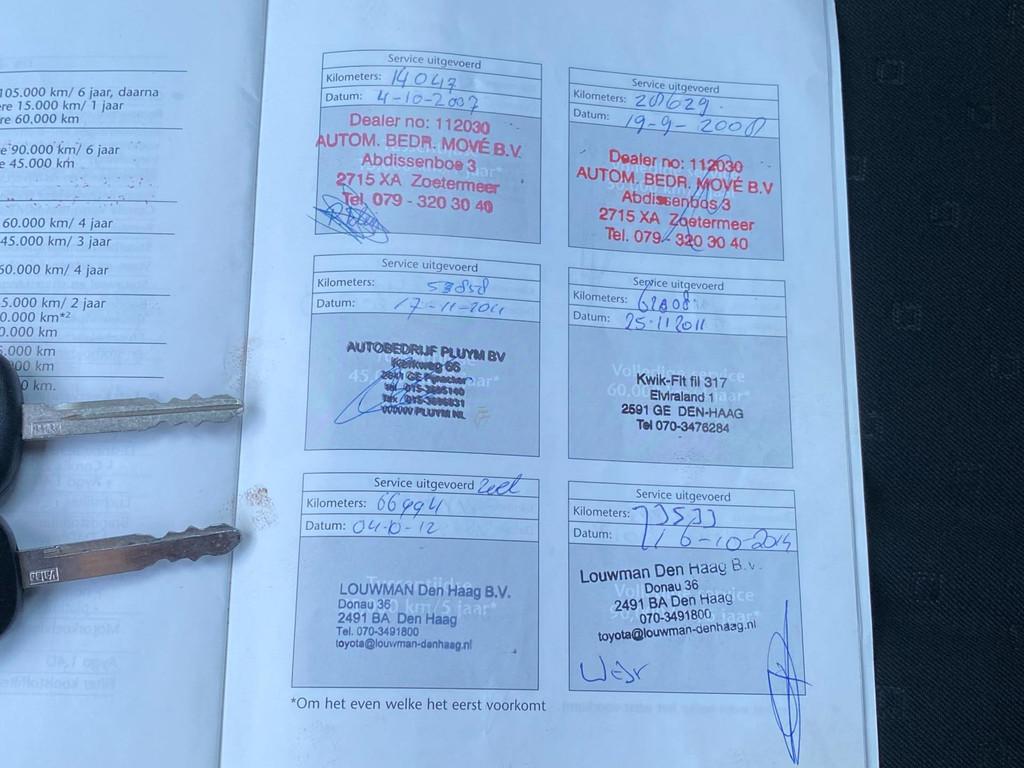 105.000 km/ 6 jaar, daarna
ere 15.000 km/ 1 jaar
re 60.000 km
90.000 km/ 6 jaar
e 45.000 km
60.000 km/ 4 jaar
45.000 km/ 3 jaar
60.000 km/ 4 jaar
5.000 km/ 2 jaar
0.000 km*2
0.000 km
5.000 km
000 km
0 km.
Service uitgevoerd
Kilometers: 14047
Datum: 4-10-2007
Dealer no: 112030
AUTOM. BEDR. MOVÉ B.V.
Abdissenboe 3
2715 XA Zoetermeer
Tel. 079 - 320 30 40
Service uitgevoerd
Kilometers: 28629
Datum: 19-9-2008
Dealer no: 112030
AUTOM. BEDR. MOVÉ B.V
Abdissenbos 3
2715 XA Zoetermeer
Tel. 079 - 320 30 40
Service uitgevoerd
Kilometers:
Datum: 17-11-2011
AUTOBEDRIJF PLUYM BV
Kerkweg 66
WWW.PLUYM.NL
Service uitgevoerd
Kilometers:
Datum: 25-11 2011
Volledige service
Kwik-Fit fil 317
Elviraland 1
2591 GE DEN-HAAG
Tel 070-3476284
Service uitgevoerd
Kilometers: 66994
Datum: 04-10-12
LOUWMAN Den Haag B.V.
Donau 36
2491 BA Den Haag
Tel. 070-3491800
toyota@louwman-denhaag.nl
Service uitgevoerd
Kilometers: 73533
Datum: 6-10-2014
LOUWMAN Den Haag B.V.
Donau 36
2491 BA Den Haag
070-3491800
toyota@louwman-denhaag.nl
*Om het even welke het eerst voorkomt